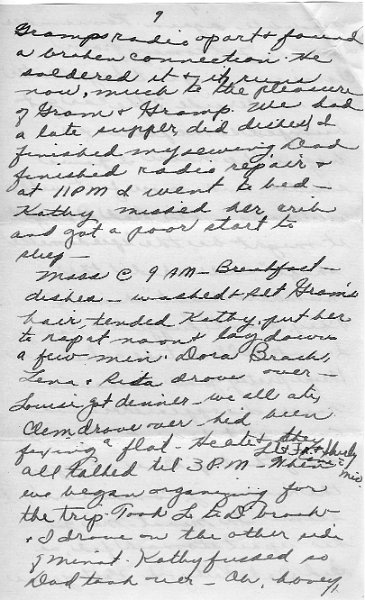 9
Gramps radio apart & found
a broken connection. He
soldered it & it runs
now, much to the pleasure
of Gram & Gramp. We had
a late supper, did dishes, I
finished my sewing Dad
finished radio repair &
at 11 PM I went to bed -
Kathy missed her crib
and got a poor start to
sleep -
Mass @ 9 AM - Breakfast -
dishes - washed & set Gram's
hair, tended Kathy, put her
to rap at noon & lay down
a few min. Dora Brach,
Lena & Rita drove over -
Louise got dinner - we all ate,
Clem drove over he'd been
fixing a flat. He ate & they
all talked til 3 P.M. - When
we began organizing for
the trip. Took L & D Brach
& I drove on the other side
of Minot. Kathy fussed so
Dad took over - Oh, honey,